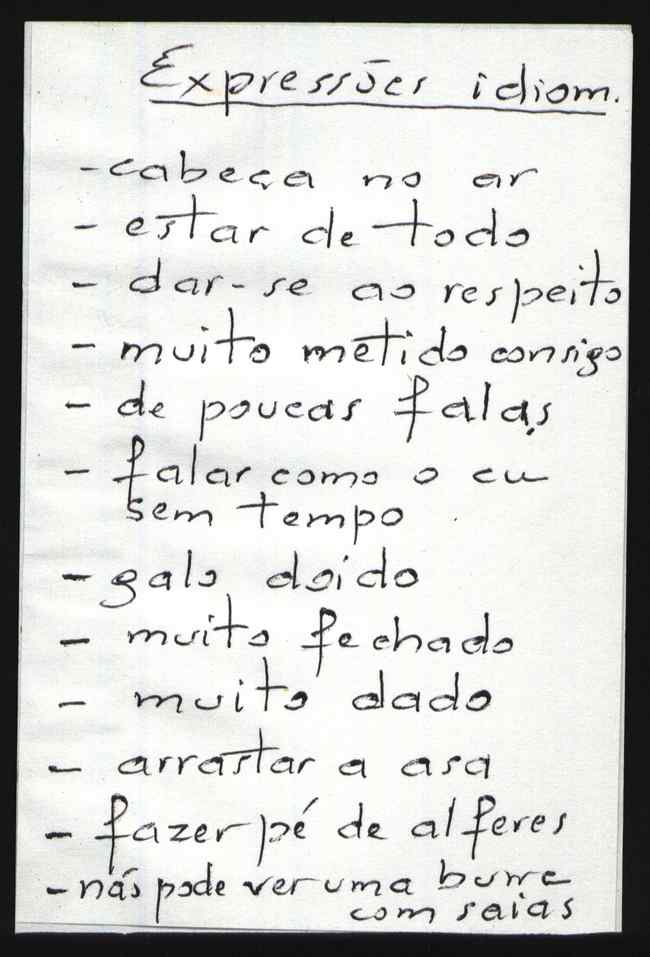 Expressões idiom.
- cabeça no ar
- estar de todo
- dar-se ao respeito
- muito metido consigo
- de poucas falas
- falar como o cu
sem tempo
- galo doido
- muito fechado
- muito dado
- arrastar a asa
- fazer pé de alferes
- não pode ver uma burra
com saias